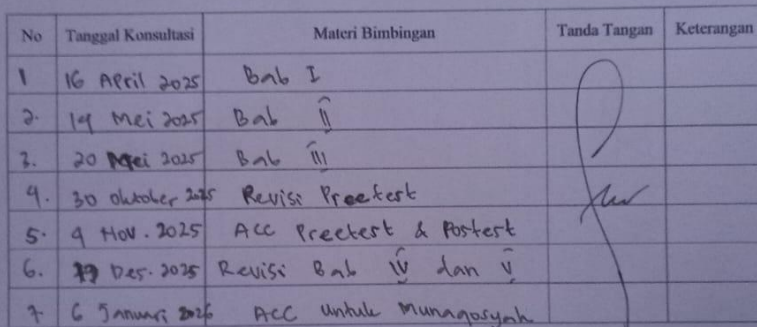 No Tanggal Konsultasi Materi Bimbingan Tanda Tangan Keterangan
1 16 April 2025 Bab I
2. 19 Mei 2025 Bab II
3. 20 Mei 2025 Bab III
4. 30 Oktober 2025 Revisi Preetest
5. 4 Nov. 2025 ACC Preetest & Postest
6. Des. 2025 Revisi Bab IV dan V
7. 6 Januari 2026 ACC untuk Munaqosyah